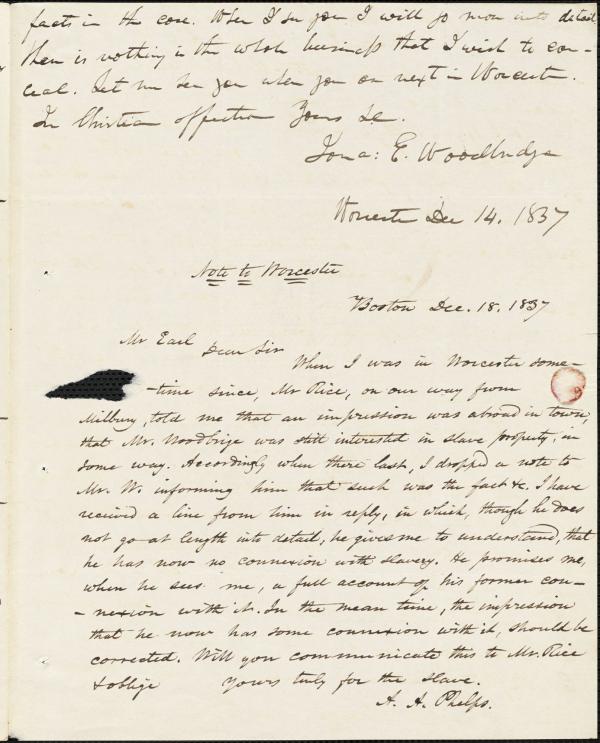 facts in the case. When I see you I will go more into detail.
There is nothing in the whole business that I wish to con-
ceal. Let me see you when you are next in Worcester.
In Christian affection Yours &c.
Jona: E. Woodbridge
Worcester Dec 14. 1837
Note to Worcester
Boston Dec. 18. 1837
Mr Earl
Dear Sir
When I was in Worcester some-
-time since, Mr Rice, on our way from
Milbury, told me that an impression was abroad in town,
that Mr. Woodbrige was still interested in slave property, in
some way. Accordingly when there last, I dropped a note to
Mr. W. informing him that such was the fact &c. I have
received a line from him in reply, in which, though he does
not go at length into detail, he gives me to understand, that
he has now no connexion with slavery. He promises me,
when he sees me, a full account of his former con-
-nexion with it. In the mean time, the impression
that he now has some connexion with it, should be
corrected. Will you communicate this to Mr. Rice
& oblige yours truly for the slave.
A. A. Phelps.